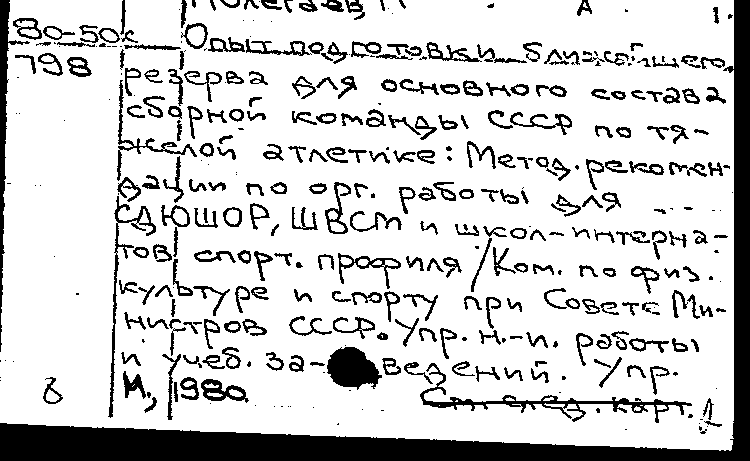 А 1.
80-50к Опыт подготовки ближайшего
798 резерва для основного состава
сборной команды СССР по тя-
желой атлетике: Метод. рекомен-
дации по орг. работы для
СДЮШОР, ШВСМ и школ-интерна-
тов спорт. профиля / Ком. по физ.
культуре и спорту при Совете Ми-
нистров СССР. Упр. н.-и. работы
и учеб. за-ведений. Упр.
М., 1980
См. след. карт.